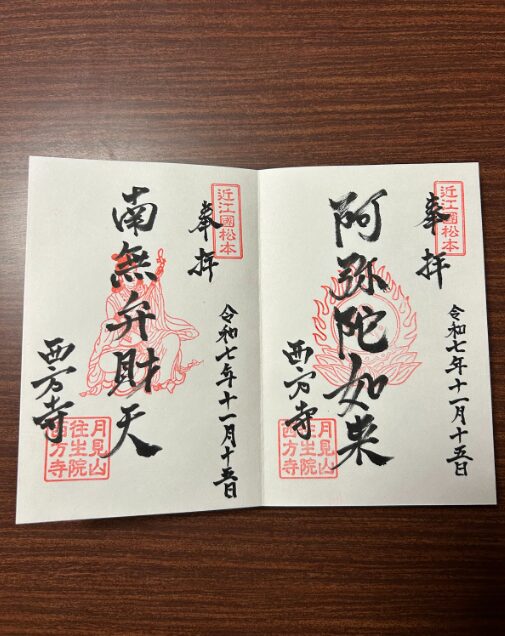 近江國松本
奉拝
阿弥陀如来
令和七年十一月十五日
西方寺
月見山
往生院
西方寺
近江國松本
奉拝
南無弁財天
令和七年十一月十五日
西方寺
月見山
往生院
西方寺